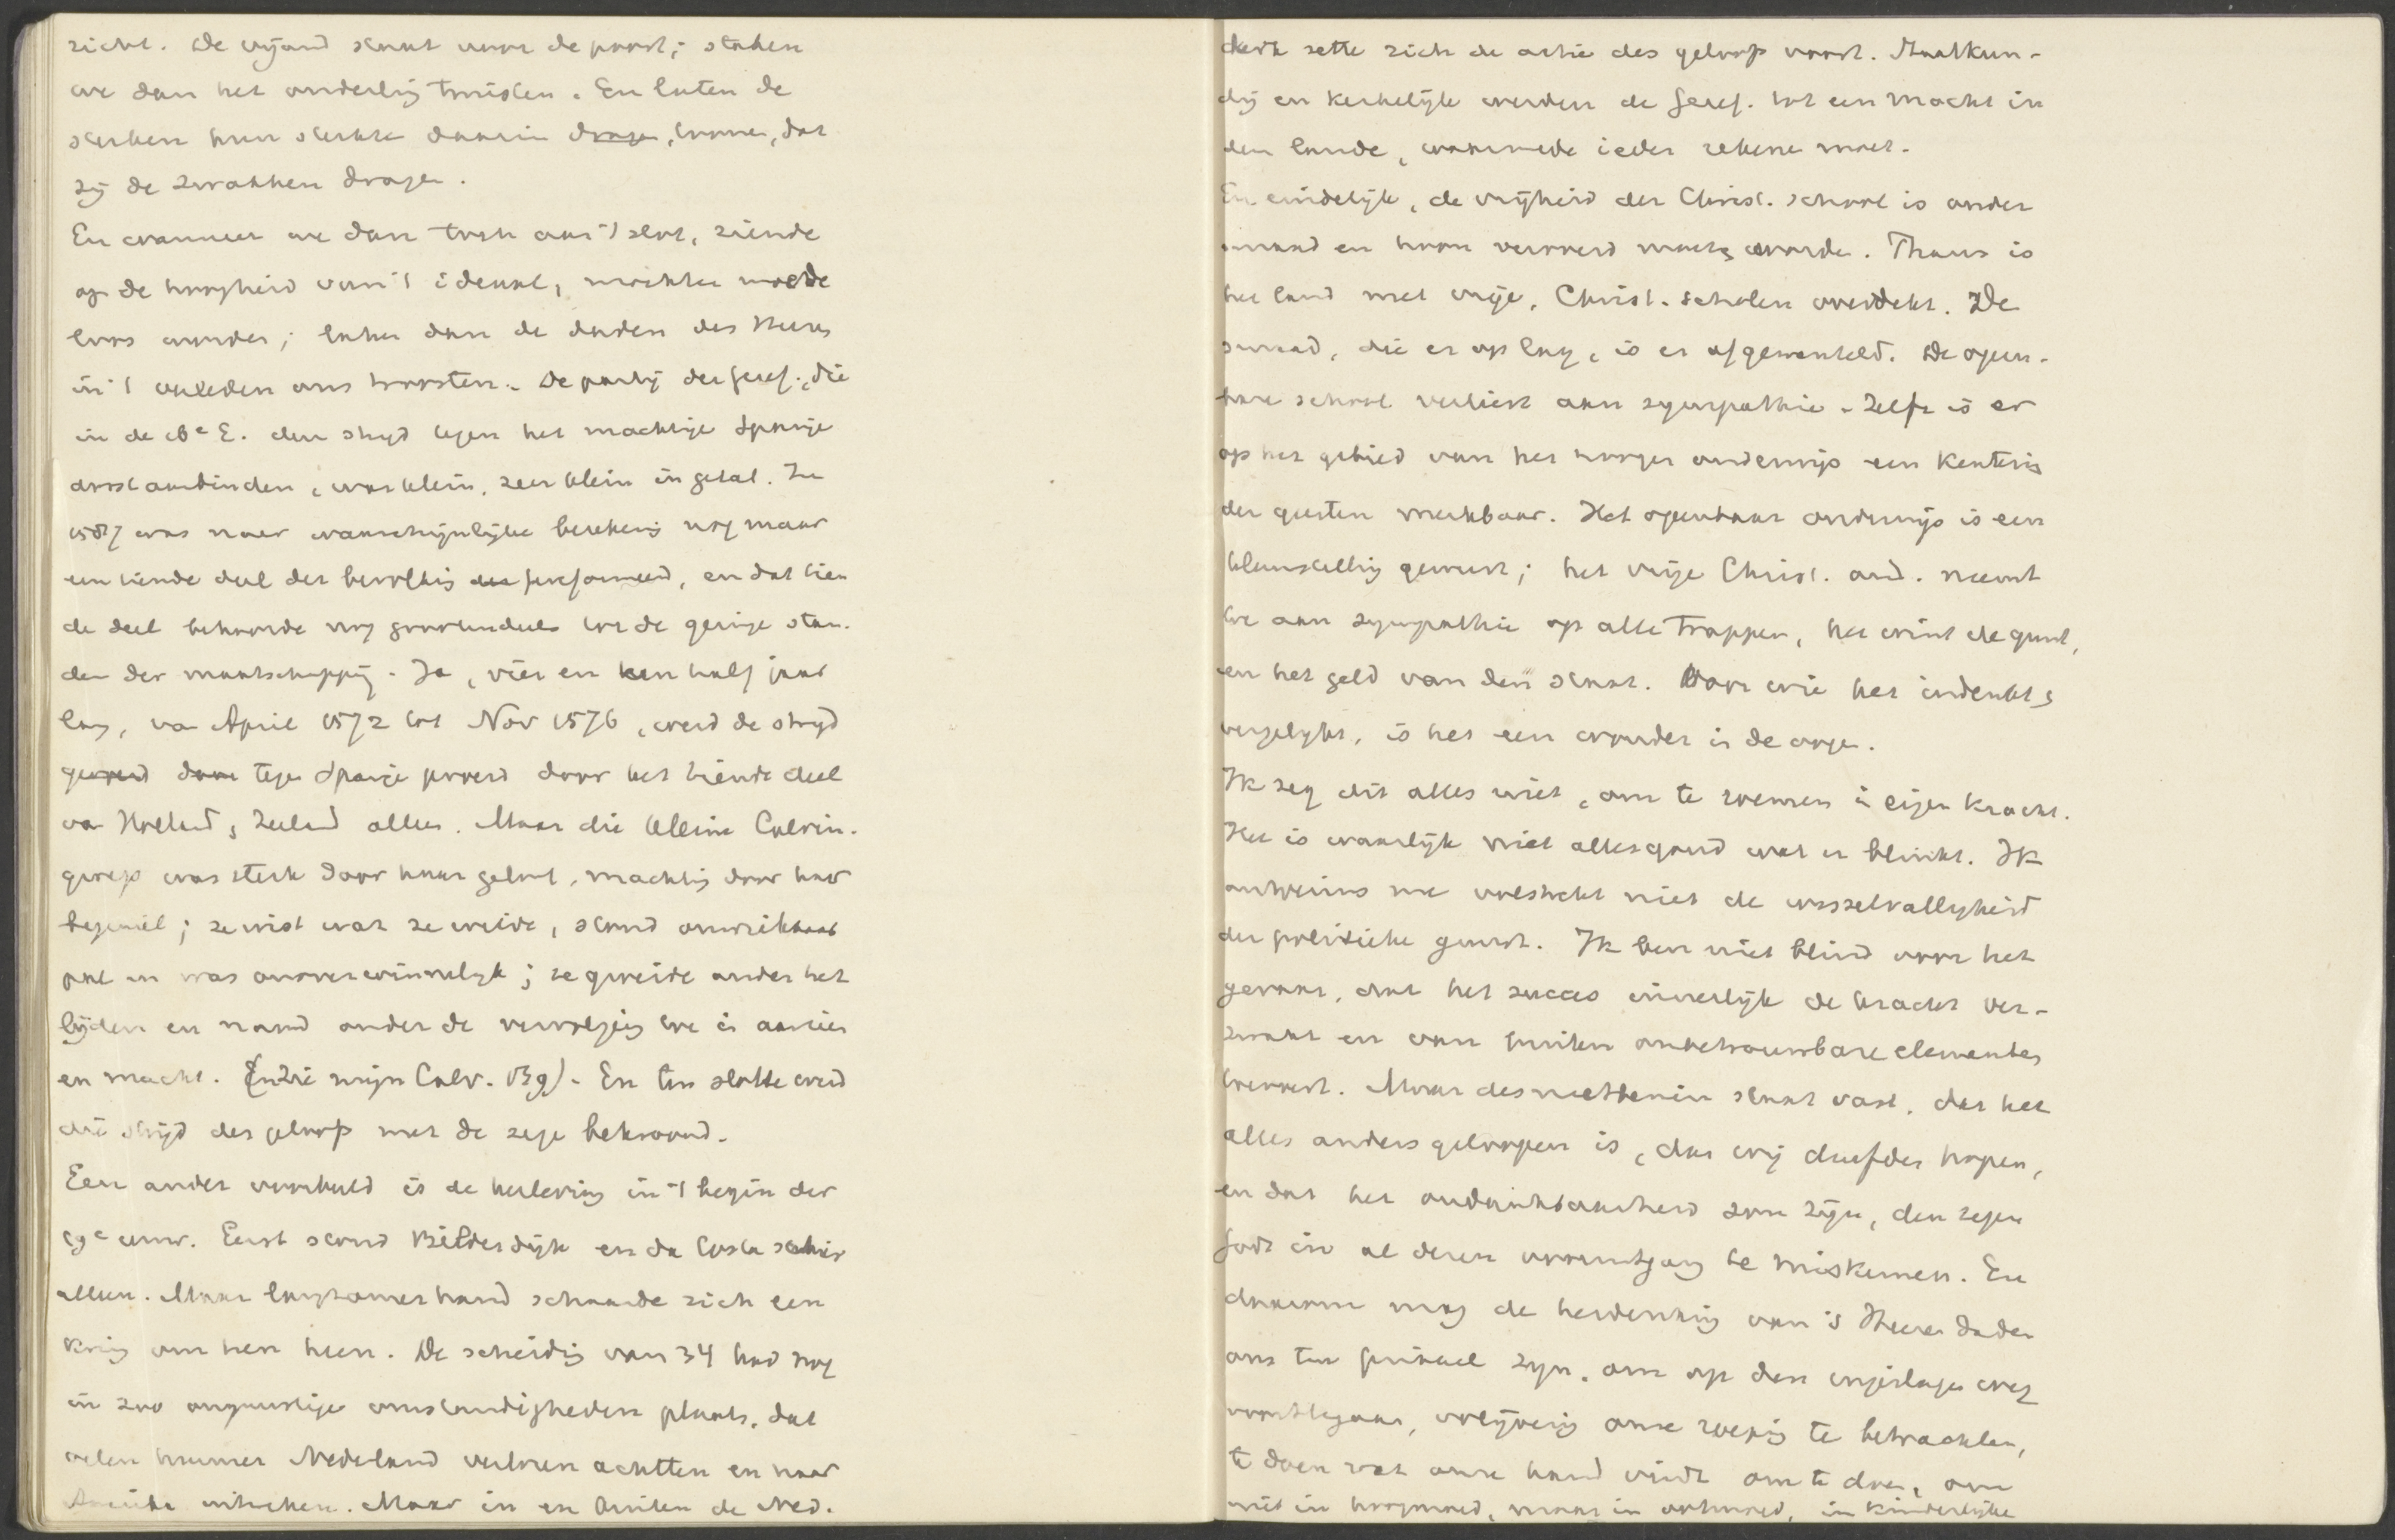 zicht. De vijand staat voor de poort; staken
we dan het onderling twisten. En laten de
sterken hun sterkte daarin tonen, dat
zij de zwakken dragen.
En wanneer we dan toch aan 't slot, ziende
op de hoogheid van 't ideaal, mochten moede-
loos worden; laten dan de daden des Heeren
in 't verleden ons troosten. De partij der Geref., die
in de 16e E. den strijd tegen het machtige Spanje
dorst aanbinden, was klein, zeer klein in getal. In
1587 was naar waarschijnlijke berekening nog maar
een tiende deel der bevolking gereformeerd, en dat tien-
de deel behoorde nog grootendeels tot de geringe stan-
den der maatschappij. Ja, vier en een half jaar
lang, van April 1572 tot Nov 1576, werd de strijd
tegen Spanje gevoerd door het tiende deel
van Holland & Zeeland alleen. Maar die kleine Calvin.
groep was sterk door haar geloof, machtig door haar
beginsel; ze wist wat ze wilde, stond onwrikbaar
pal en was onoverwinnelijk; ze groeide onder het
lijden en nam onder de vervolging toe in aanzien
en macht. (Zie mijn Calv. 139). En ten slotte werd
die strijd des geloofs met de zege bekroond.
Een ander voorbeeld is de herleving in 't begin der
19e eeuw. Eerst stond Bilderdijk en da Costa schier
alleen. Maar langzamerhand schaarde zich een
kring om hen heen. De scheiding van 34 had nog
in zoo ongunstige omstandigheden plaats, dat
velen hunner Nederland verloren achtten en naar
Amerika uitweken. Maar in en buiten de Ned.
kerk zette zich de actie des geloofs voort. Staatkun-
dig en kerkelijk werden de Geref. tot een macht in
den lande, waarmede ieder rekenen moet.
En eindelijk, de vrijheid der Christ. school is onder
smaad en hoon veroverd moeten worden. Thans is
het land met vrije, Christ. scholen overdekt. De
smaad, die er op lag, is er afgewenteld. De open-
bare school verliest aan sympathie. Zelfs is er
op het gebied van het hooger onderwijs een kentering
der geesten merkbaar. Het openbaar onderwijs is een
teleurstelling geweest; het vrije Christ. ond. neemt
toe aan sympathie op alle trappen, het wint de gunst,
en het geld van den staat. Voor wie het indenkt &
vergelijkt, is het een wonder in de oogen.
Ik zeg dit alles niet, om te roemen in eigen kracht.
Het is waarlijk niet alles goud wat er blinkt. Ik
ontveins me volstrekt niet de wisselvalligheid
der politieke gunst. Ik ben niet blind voor het
gevaar, dat het succes innerlijk de kracht ver-
zwakt en van buiten onbetrouwbare elementen
toevoert. Maar desniettemin staat vast, dat het
alles anders geloopen is, dan wij durfden hopen,
en dat het ondankbaarheid zou zijn, den zegen
Gods in al dezen vooruitgang te miskennen. En
daarom mag de herdenking van 's Heeren daden
ons ten prikkel zijn, om op den ingeslagen weg
voort te gaan, volijverig onze roeping te betrachten,
te doen wat onze hand vindt om te doen, om
niet in hoogmoed, maar in ootmoed, in kinderlijke